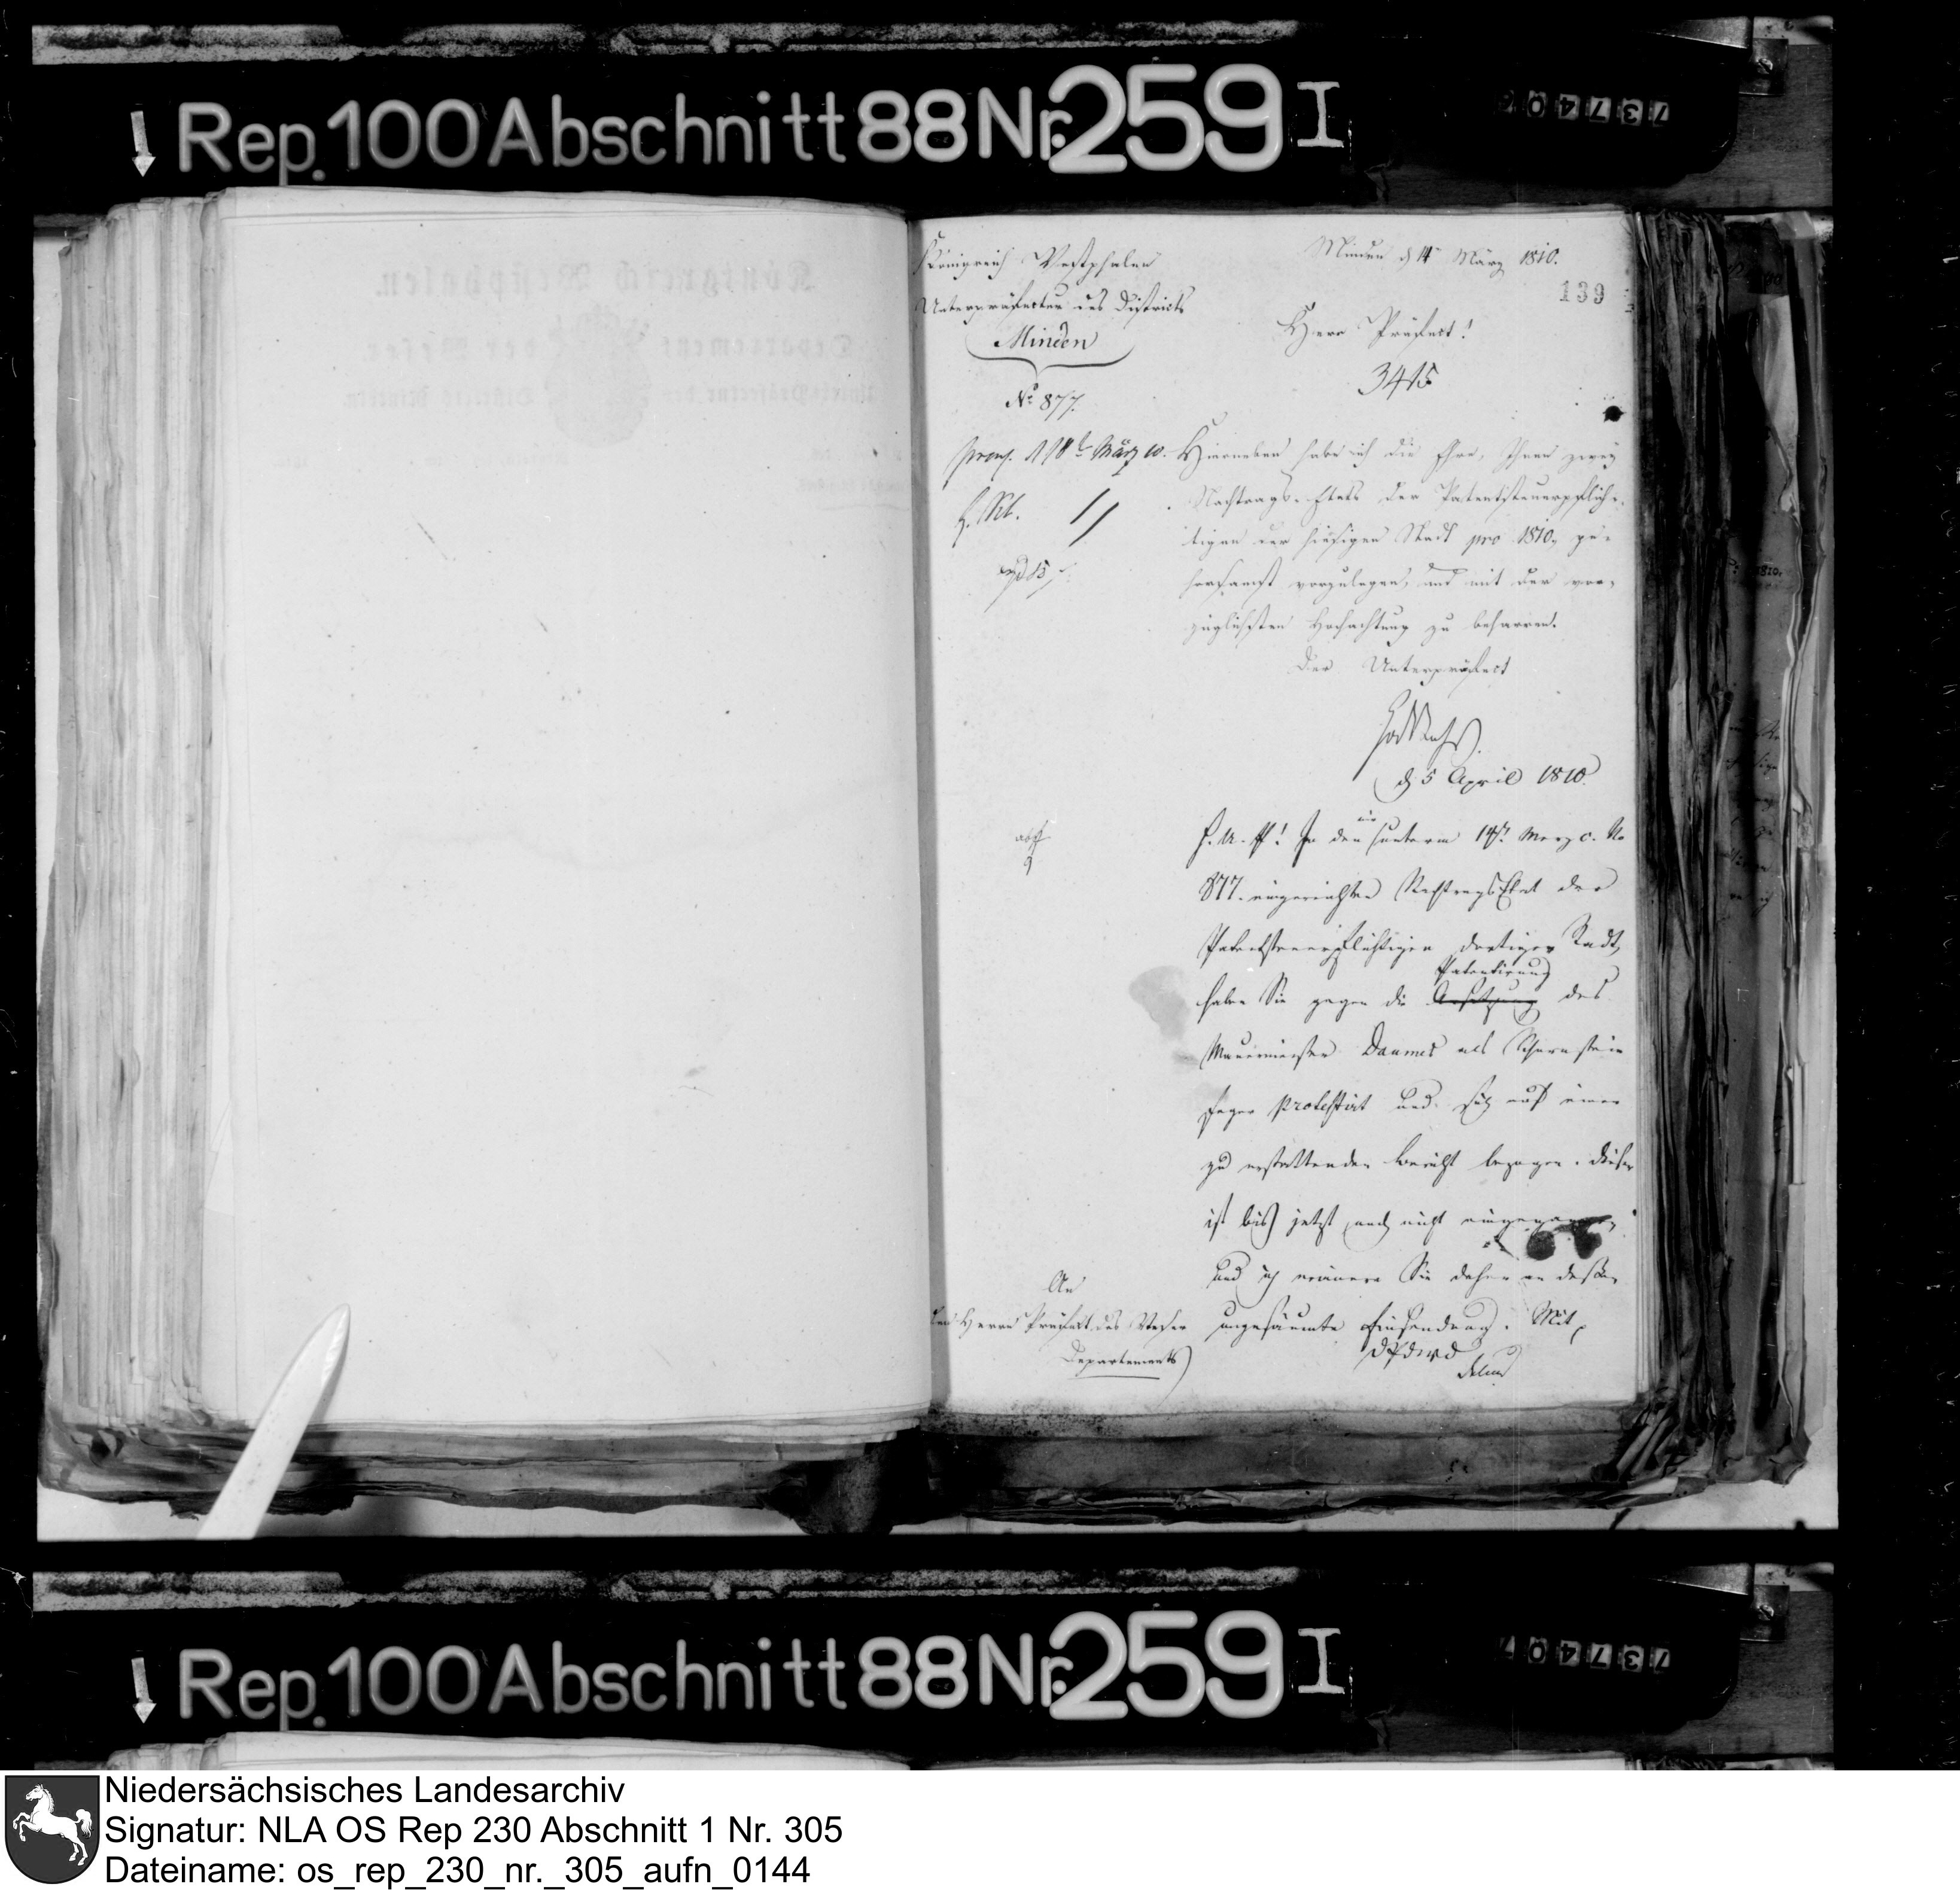 Rep. 100 Abschnitt 88 Nr. 259 I
Königreich Westphalen
Unterpräfectur des Districts
Minden
No 877.
Minden d 14 März 1810.
139
Herr Präfect!
3415
praes. d 18 März 10.
Hierneben habe ich die Ehre, Ihnen zwey
Nachtrags-Etats der Patentsteuerpflich-
tigen der hiesigen Stadt pro 1810, ge-
horsamst vorzulegen, und mit der vor-
züglichsten Hochachtung zu beharren.
Der Unterpräfect
d 5 April 1810
H. U. Pf! In den mir unterm 14 Merz c. No
877. eingereichten NachtragsEtat der
Patentsteuerpflichtigen dortiger Stadt,
haben Sie gegen die Patentirung des
Mauermeister Daumes als Schornstein
feger protestirt und sich auf einen
zu erstattenden Bericht bezogen. Dieser
ist bis jetzt noch nicht eingegangen,
und ich erinnere Sie daher an dessen
ungesäumte Einsendung. Mit
DPdWD
An
den Herrn Präfect des Weser
Departements
Rep. 100 Abschnitt 88 Nr. 259 I
Niedersächsisches Landesarchiv
Signatur: NLA OS Rep 230 Abschnitt 1 Nr. 305
Dateiname: os_rep_230_nr._305_aufn_0144